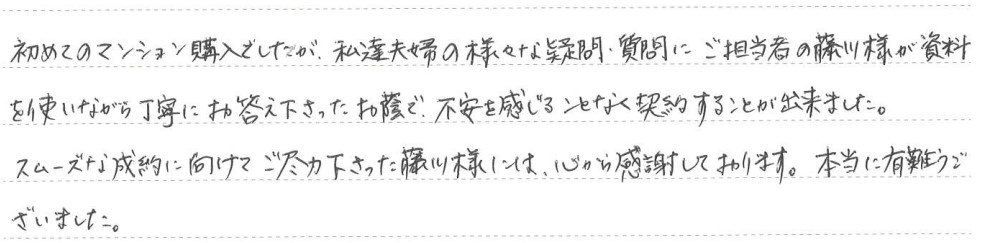 初めてのマンション購入でしたが、私達夫婦の様々な疑問・質問に ご担当者の藤川様が資料
を使いながら丁寧にお答え下さったお蔭で、不安を感じることなく契約することが出来ました。
スムーズな成約に向けてご尽力下さった藤川様には、心から感謝しております。本当に有難うご
ざいました。